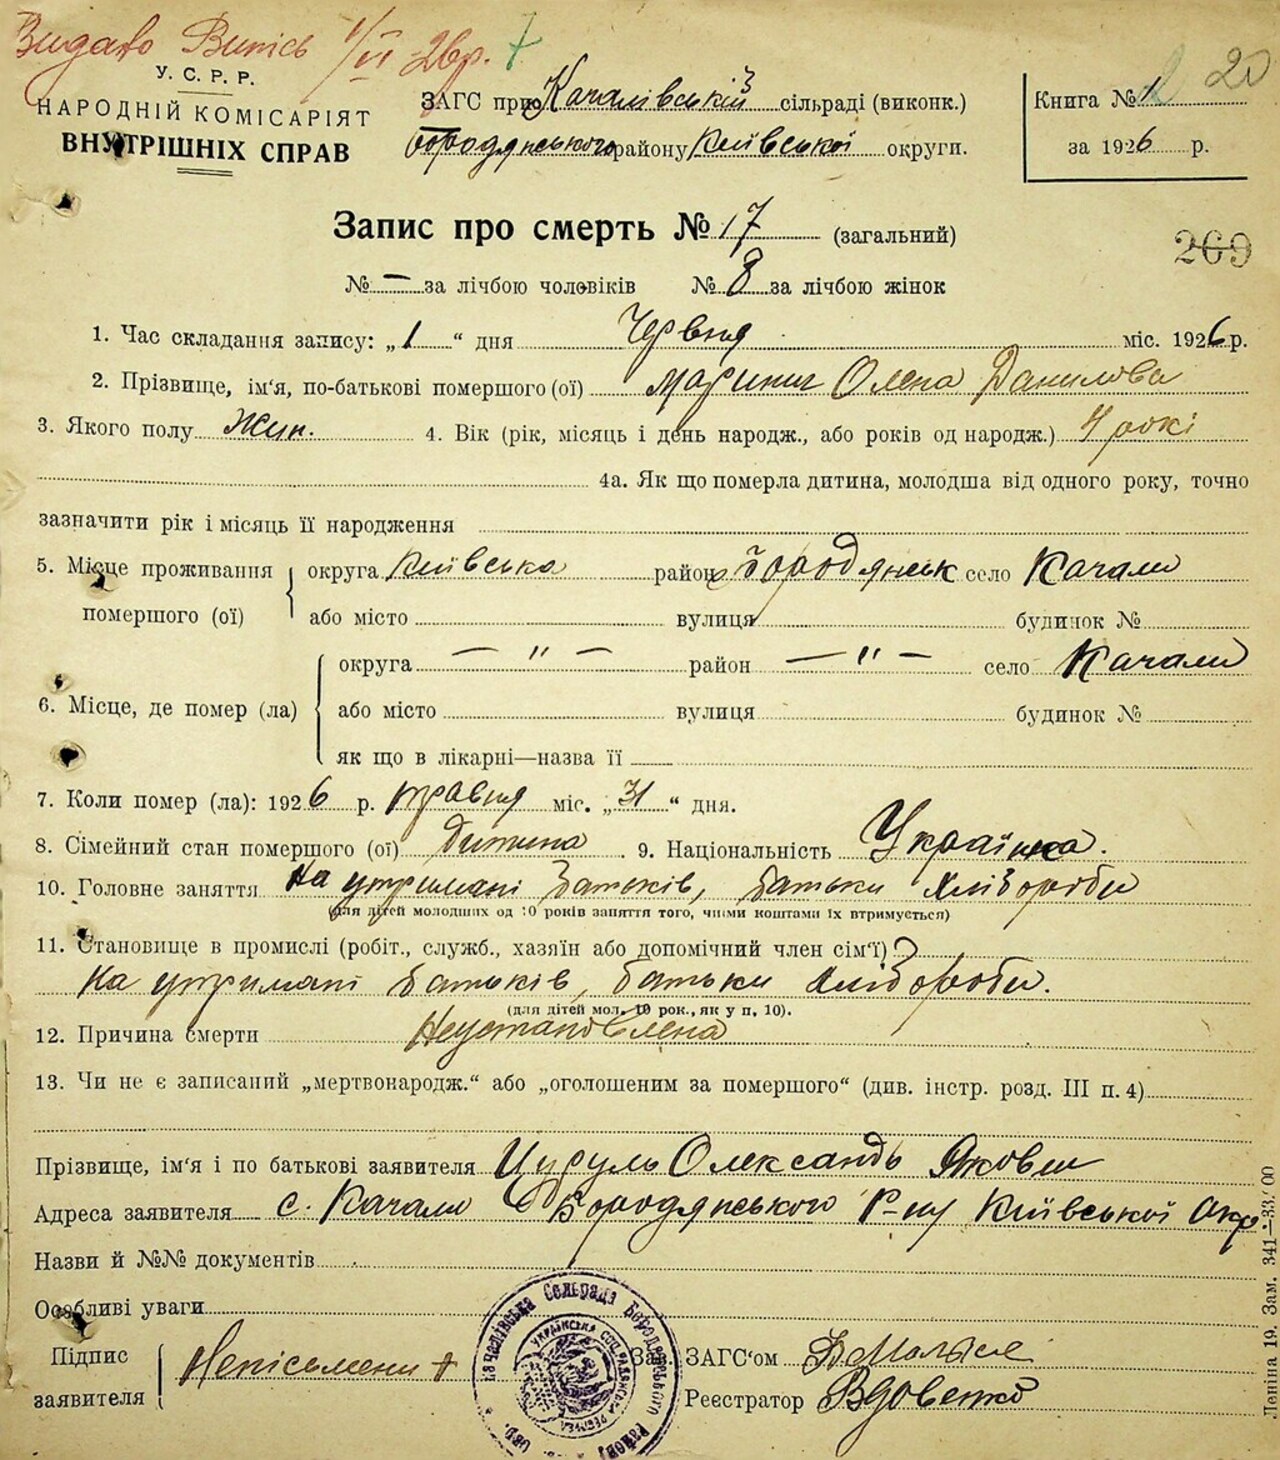 Видано Випись 1/VI 26р.
У. С. Р. Р.
НАРОДНІЙ КОМІСАРІЯТ
ВНУТРІШНІХ СПРАВ
ЗАГС при Качалівській сільраді (виконк.)
Бородянського району Київської округи.
Книга № 1
20
за 1926 р.
Запис про смерть № 17 (загальний)
269
№ — за лічбою чоловіків № 8 за лічбою жінок
1. Час складання запису: „1“ дня Червня міс. 1926 р.
2. Прізвище, ім'я, по-батькові помершого (ої) Маринич Олена Данилова
3. Якого полу Жін. 4. Вік (рік, місяць і день народж., або років од народж.) 4 рокі
4а. Як що померла дитина, молодша від одного року, точно
зазначити рік і місяць її народження
5. Місце проживання помершого (ої) округа Київська район Бородянськ село Качали
або місто вулиця будинок №
6. Місце, де помер (ла) округа — " — район — " — село Качали
або місто вулиця будинок №
як що в лікарні—назва її
7. Коли помер (ла): 1926 р. травня міс. „31“ дня.
8. Сімейний стан помершого (ої) Дитина 9. Національність Українка.
10. Головне заняття На утримані батьків, батьки хлібороби
(для дітей молодших од 10 років заняття того, чиїми коштами їх втримується)
11. Становище в промислі (робіт., служб., хазяїн або допомічний член сім'ї)
На утримані батьків, батьки хлібороби.
(для дітей мол. 10 рок., як у п. 10).
12. Причина смерти Неустановлена
13. Чи не є записаний „мертвонародж.“ або „оголошеним за помершого“ (див. інстр. розд. III п. 4)
Прізвище, ім'я і по батькові заявителя Цуруль Олександь Якович
Адреса заявителя с. Качали Бородянського Р-ну Київської Окр.
Назви й №№ документів
Особливі уваги
Підпис заявителя Неписьмени +
Зав. ЗАГС'ом
Реєстратор Вдовенко
Качалівська Сельрада Бородянського Району
УКРАЇНСЬКА СОЦ. РАДЯНСЬКА РЕСПУБЛ.
Леніна 19. Зам. 341—33.000